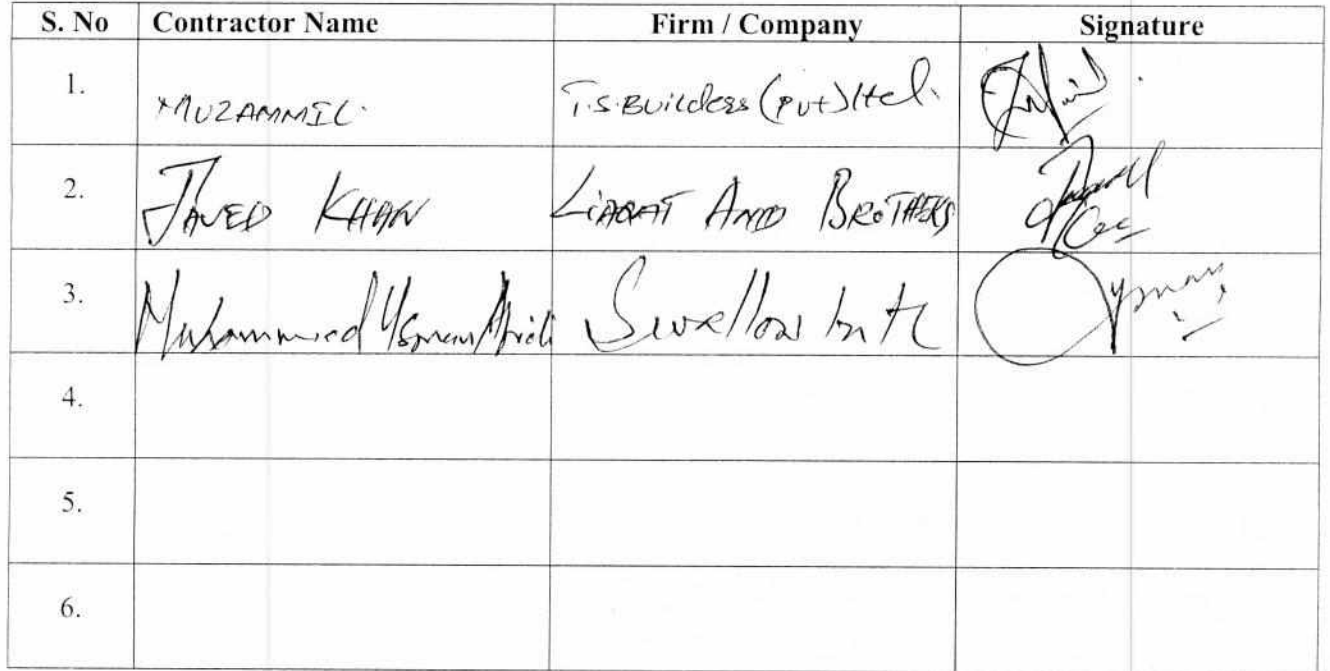 S. No Contractor Name Firm / Company Signature
1. MUZAMMIL T.S.BUILDERS (Pvt) Ltd.
2. JAVED KHAN LIAQAT AND BROTHERS
3. Muhammad Usman Afridi Swellow Int
4.
5.
6.